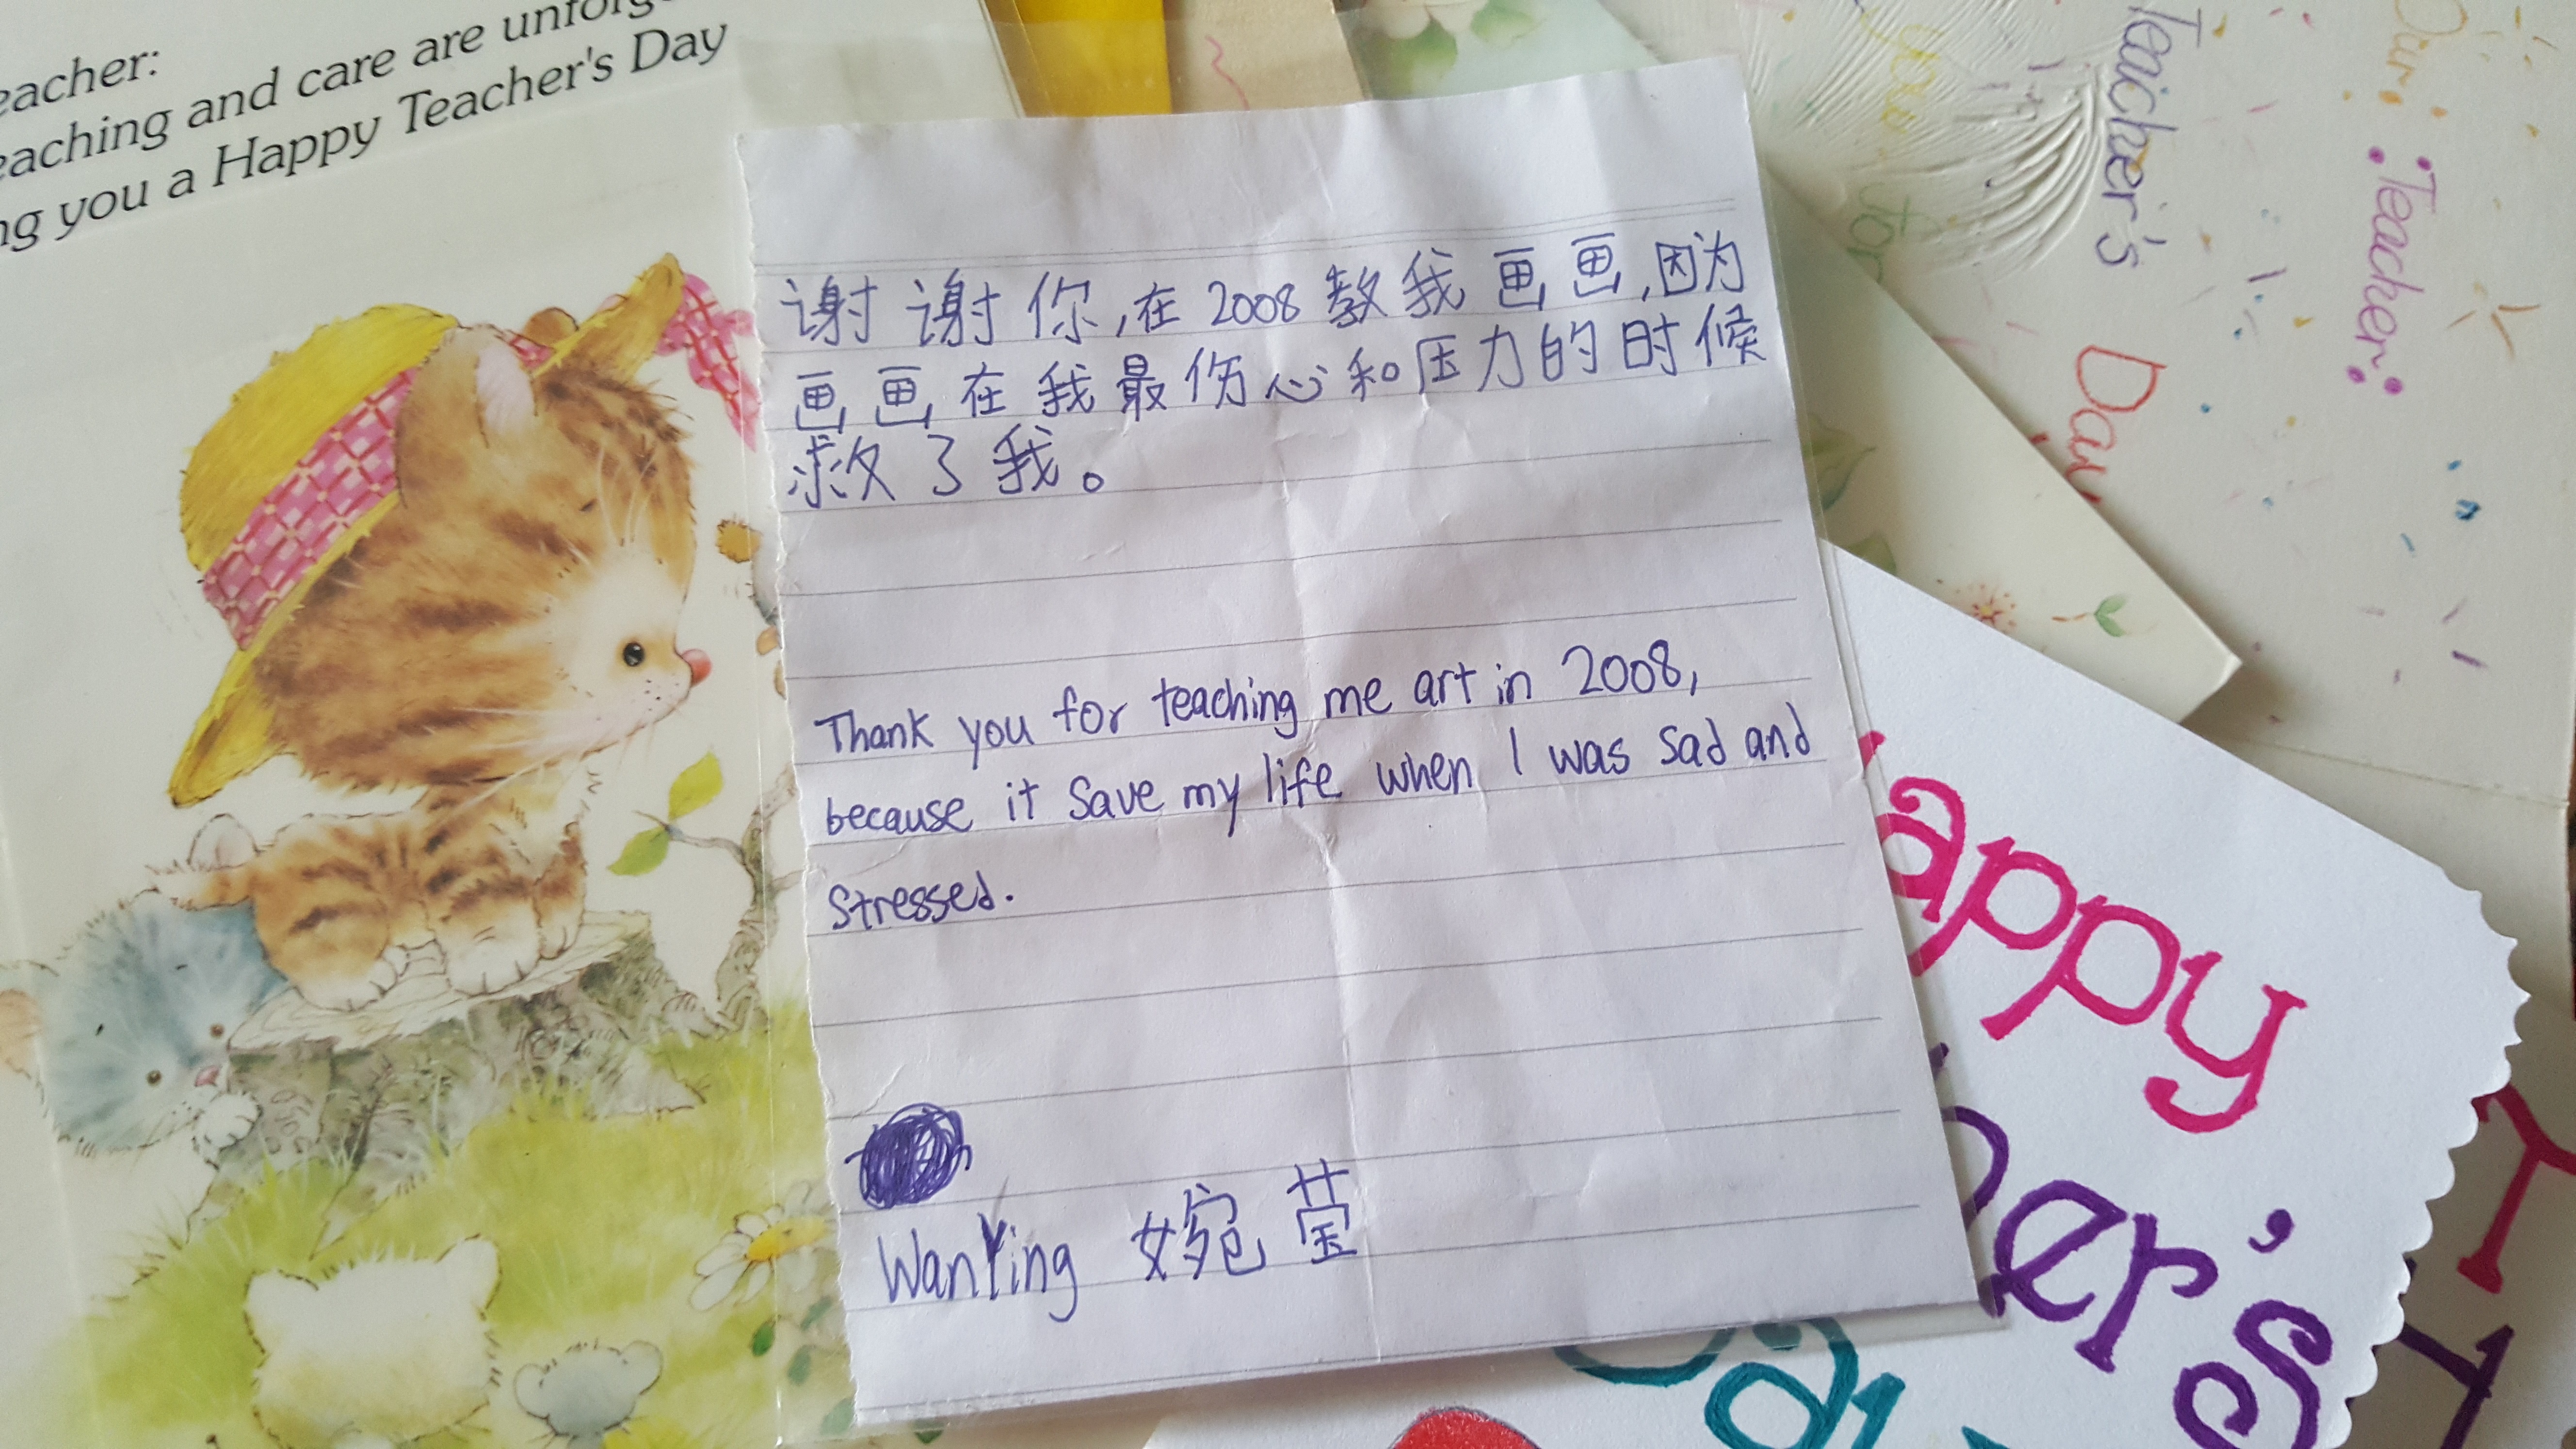 eacher:
eaching and care are unforg
ng you a Happy Teacher's Day
谢谢你,在2008教我画画,因为
画画在我最伤心和压力的时候
救了我。
Thank you for teaching me art in 2008,
because it save my life when I was sad and
stressed.
WanYing 婉莹
you
for
Teacher's
Day
Our
Teacher
appy
er's